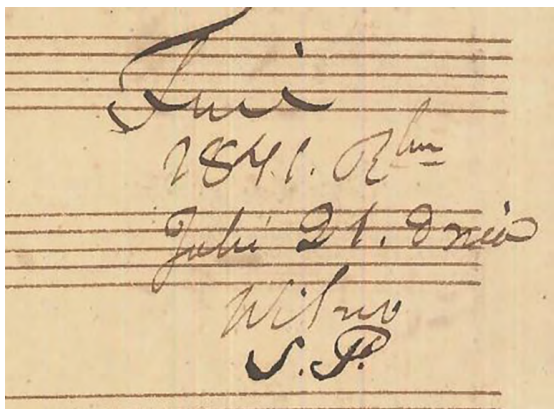 Fine
1841. Rku
Julii 21. dnia
Wilno
S. P.